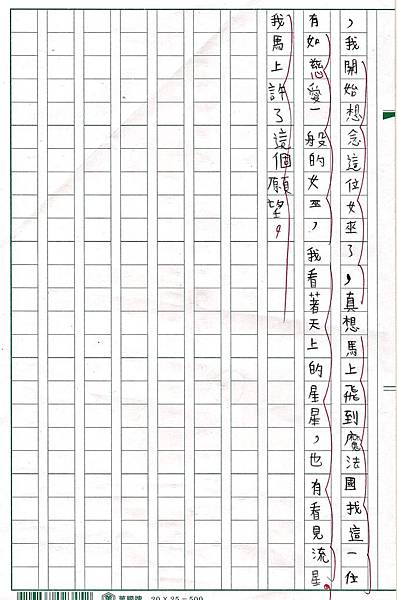 ，我開始想念這位女巫了，真想馬上飛到魔法國找這一任
有如慈愛一般的女巫，我看著天上的星星，也有看見流星。
我馬上許了這個願望。
20 X 25 = 500